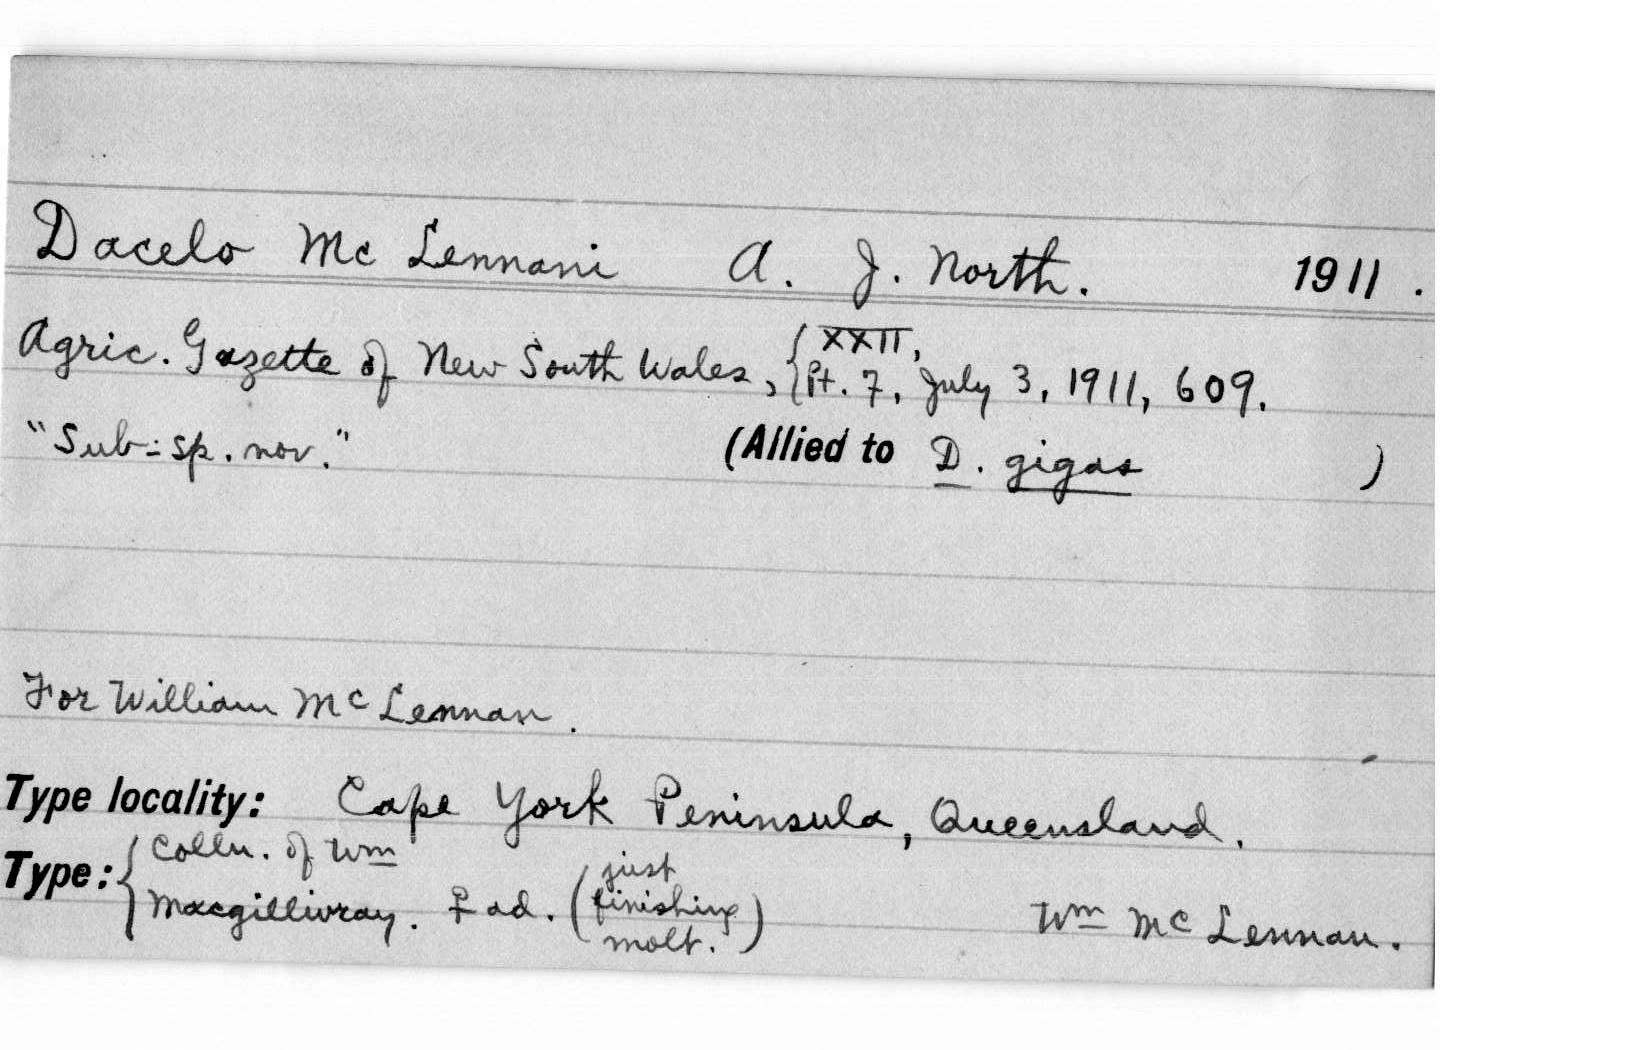 Dacelo Mc Lennani A. J. North. 1911.
Agric. Gazette of New South Wales, { XXII,
Pt. 7, July 3, 1911, 609.
"Sub-sp. nov." (Allied to D. gigas )
For William Mc Lennan.
Type locality: Cape York Peninsula, Queensland.
Type: { Colln. of Wm
Macgillivray. ♀ ad. (just
finishing
molt.) Wm Mc Lennan.